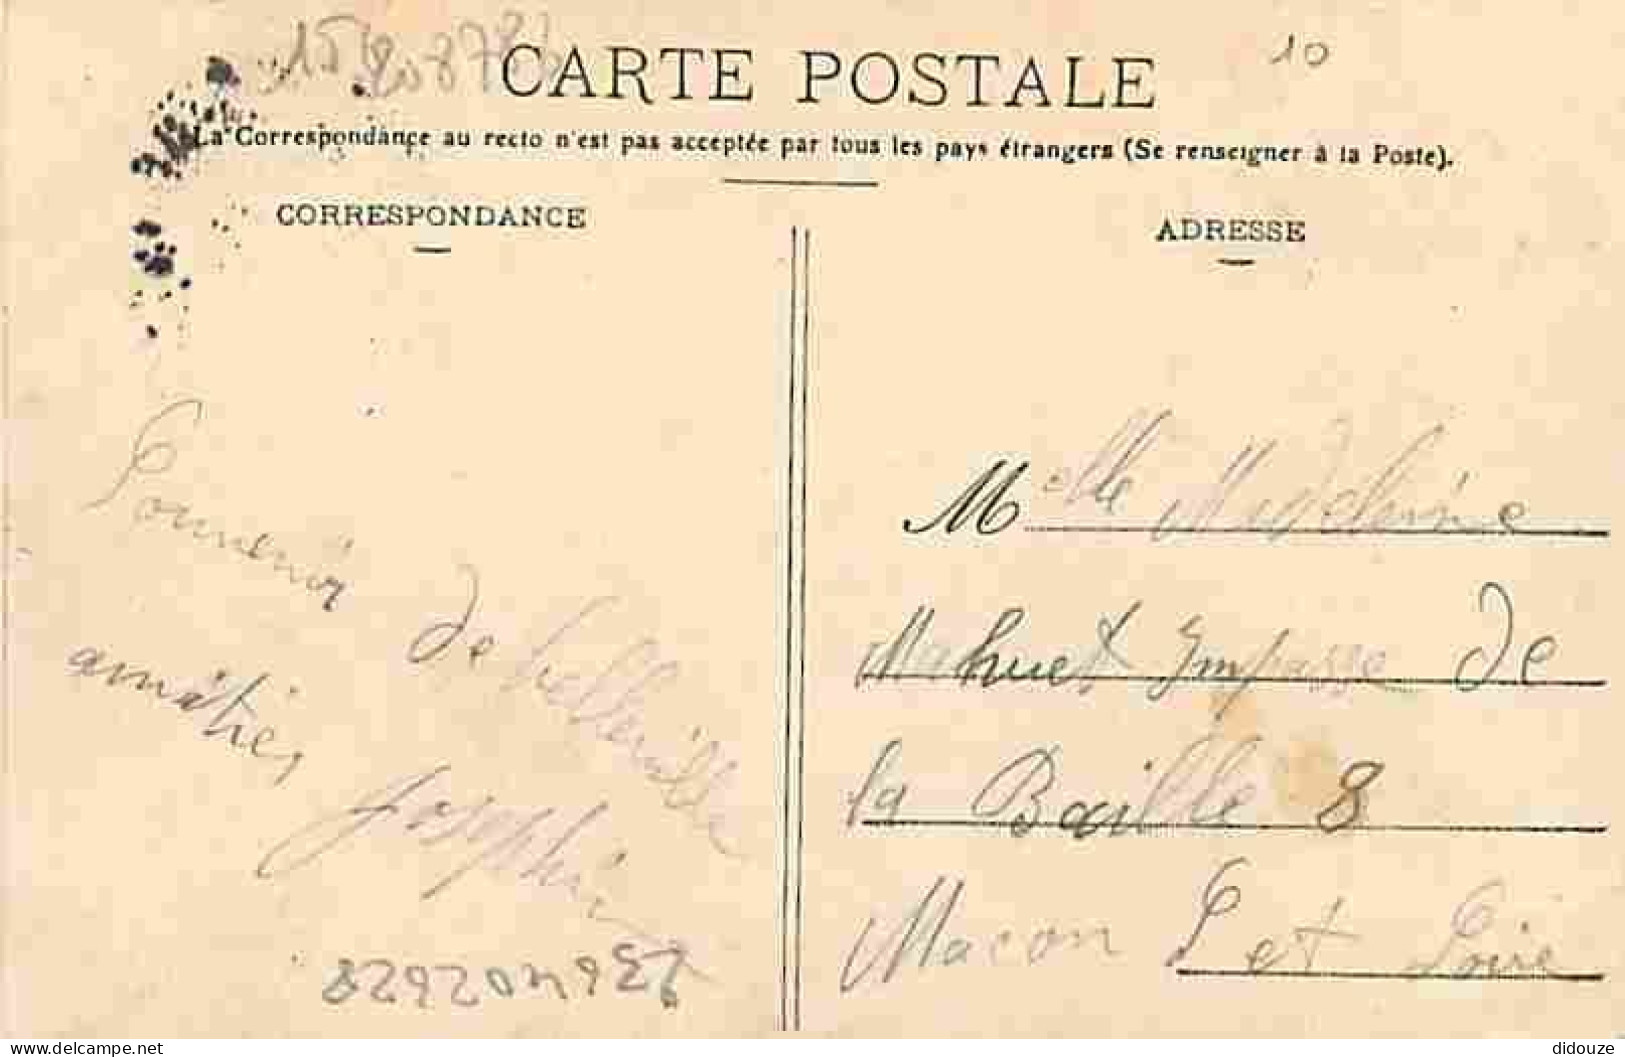 10
CARTE POSTALE
La Correspondance au recto n'est pas acceptée par tous les pays étrangers (Se renseigner à la Poste).
CORRESPONDANCE
Souvenir
de belleville
amitiés
Joséphine
ADRESSE
Melle Madeleine
Mahuet Impasse de
la Baille 8
Macon S et Loire
delcampe.net
didouze